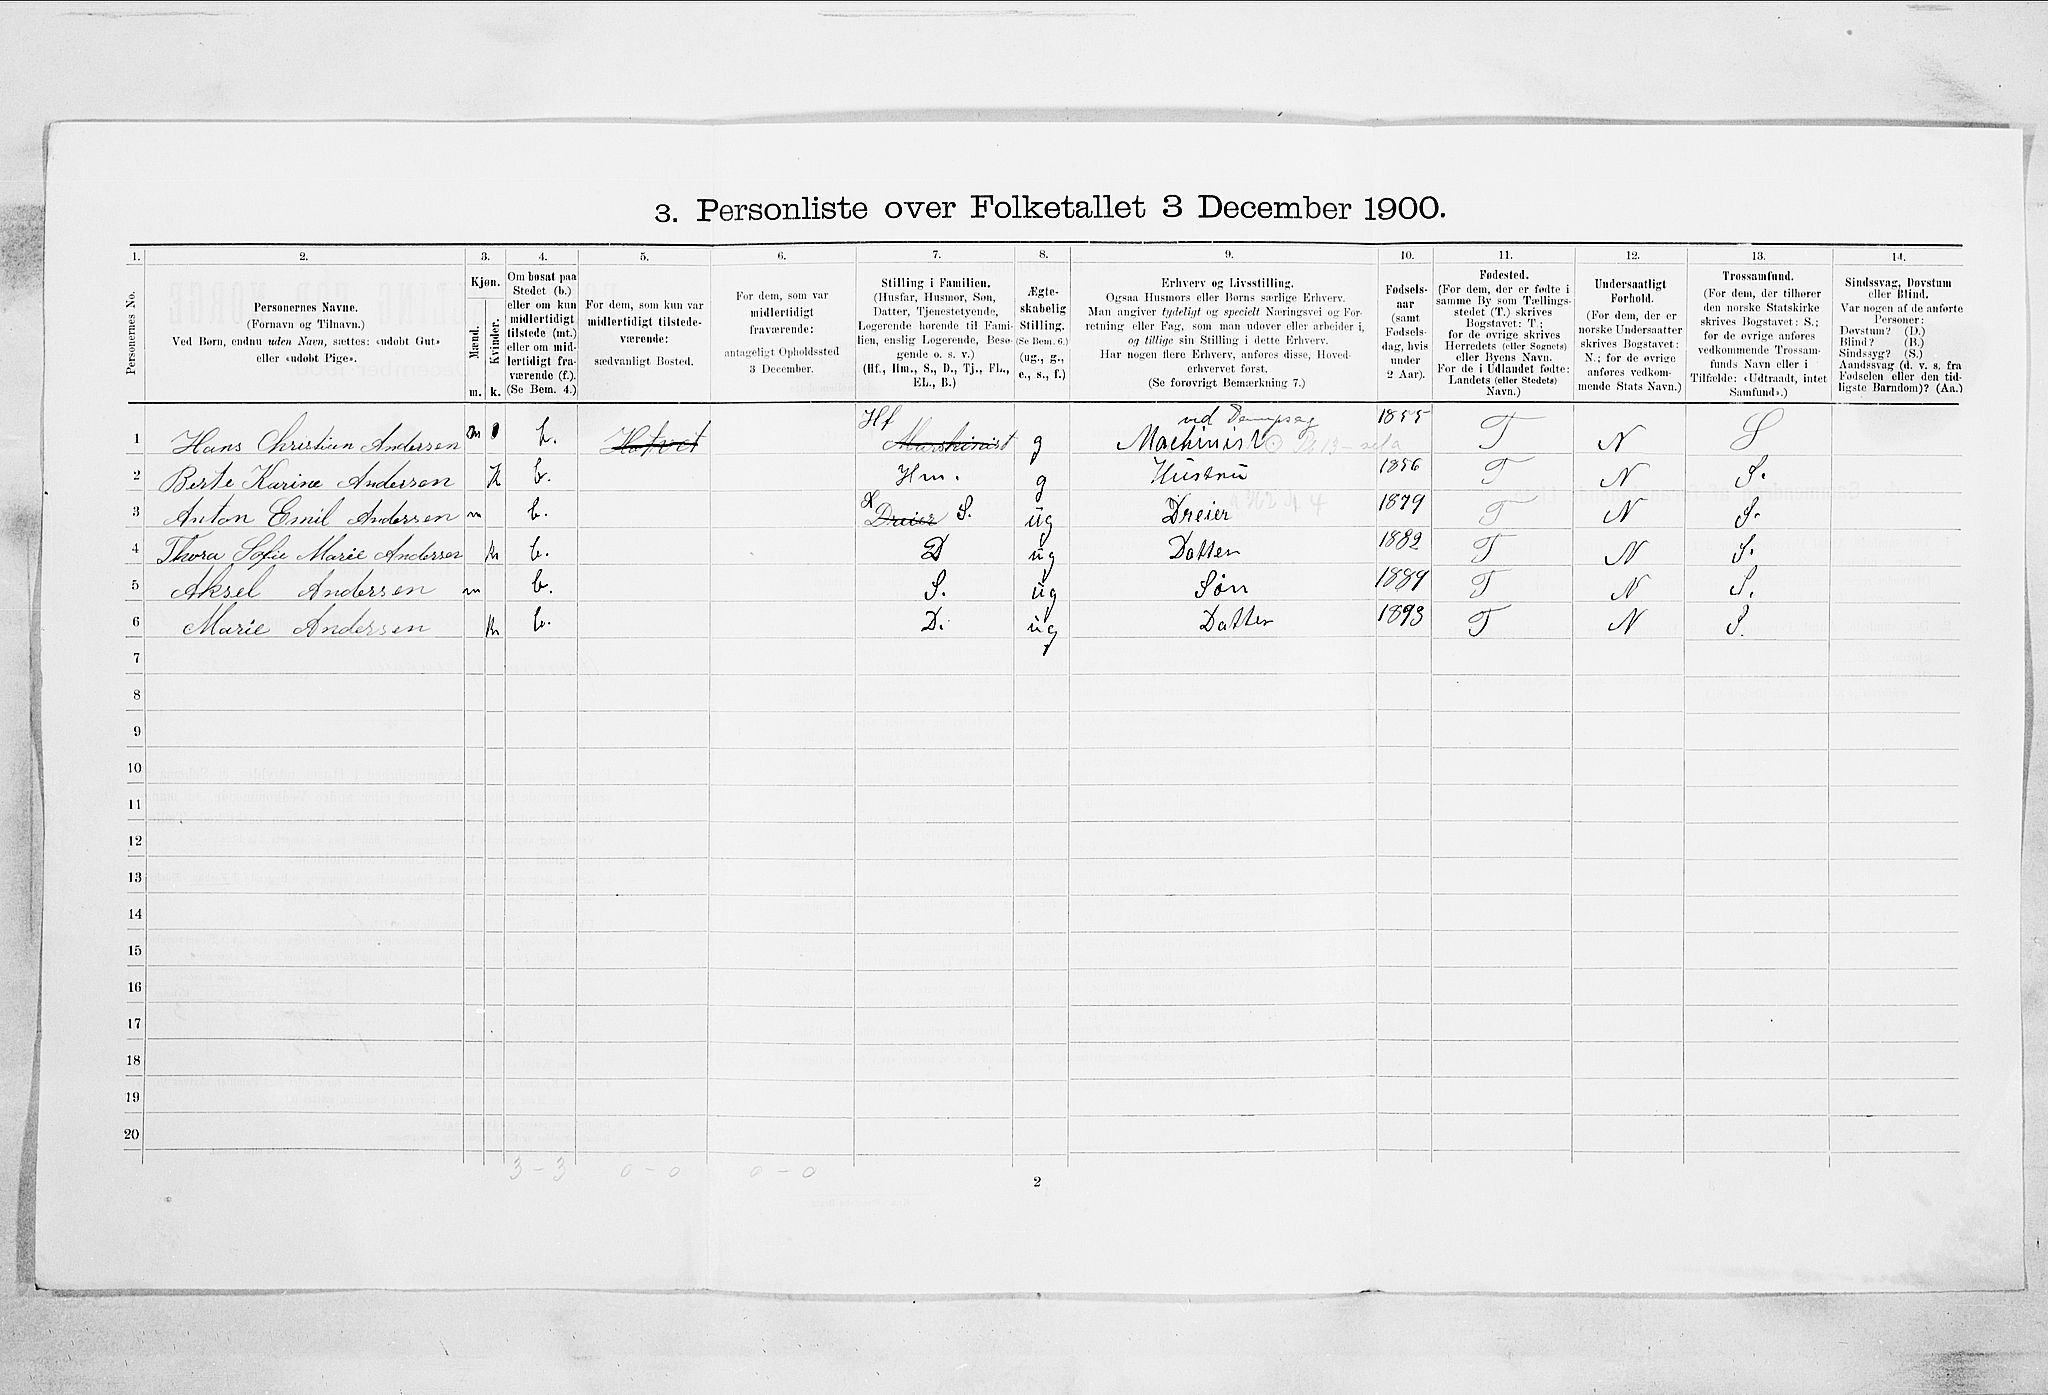 3. Personliste over Folketallet 3 December 1900.
1. 2. 3. 4. 5. 6. 7. 8. 9. 10. 11. 12. 13. 14.
Personernes No.
Personernes Navne.
(Fornavn og Tilnavn.)
Ved Børn, endnu uden Navn, sættes: «udøbt Gut»
eller «udøbt Pige».
Kjøn.
Mænd.
Kvinder.
m. k.
Om bosat paa
Stedet (b.)
eller om kun
midlertidigt
tilstede (mt.)
eller om mid-
lertidigt fra-
værende (f.).
(Se Bem. 4.)
For dem, som kun var
midlertidigt tilstede-
værende:
sædvanligt Bosted.
For dem, som var
midlertidigt
fraværende:
antageligt Opholdssted
3 December.
Stilling i Familien.
(Husfar, Husmor, Søn,
Datter, Tjenestetyende,
Logerende hørende til Fami-
lien, enslig Logerende, Besø-
gende o. s. v.)
(Hf., Hm., S., D., Tj., FL.,
EL., B.)
Ægte-
skabelig
Stilling.
(Se Bem. 6.)
(ug., g.,
e., s., f.)
Erhverv og Livsstilling.
Ogsaa Husmors eller Børns særlige Erhverv.
Man angiver tydeligt og specielt Næringsvei og For-
retning eller Fag, som man udøver eller arbeider i,
og tillige sin Stilling i dette Erhverv.
Har nogen flere Erhverv, anføres disse, Hoved-
erhvervet først.
(Se forøvrigt Bemærkning 7.)
Fødsels-
aar
(samt
Fødsels-
dag, hvis
under
2 Aar).
Fødested.
(For dem, der er fødte i
samme By som Tællings-
stedet (T.) skrives
Bogstavet: T.;
for de øvrige skrives
Herredets (eller Sognets)
eller Byens Navn.
For de i Udlandet fødte:
Landets (eller Stedets)
Navn.)
Undersaatligt
Forhold.
(For dem, der er
norske Undersaatter
skrives Bogstavet:
N.; for de øvrige
anføres vedkom-
mende Stats Navn.)
Trossamfund.
(For dem, der tilhører
den norske Statskirke
skrives Bogstavet: S.;
for de øvrige anføres
vedkommende Trossam-
funds Navn eller i
Tilfælde: «Udtraadt, intet
Samfund».)
Sindssvag, Døvstum
eller Blind.
Var nogen af de anførte
Personer:
Døvstum? (D.)
Blind? (B.)
Sindssyg? (S.)
Aandssvag (d. v. s. fra
Fødselen eller den tid-
ligste Barndom)? (Aa.)
Hf ved Dampsag
1 Hans Christian Andersen m b. Maschinist g Machinist 1855 T N S
2 Berte Karine Andersen K b. Hm. g Hustru 1856 T N S.
3 Anton Emil Andersen m b. Dreier S. ug Dreier 1879 T N S.
4 Thora Sofie Marie Andersen k b. D ug Datter 1882 T N S.
5 Aksel Andersen m b. S. ug Søn 1889 T N S.
6 Marie Andersen k b. D. ug Datter 1893 T N S.
7
8
9
10
11
12
13
14
15
16
17
18
19
20
3 - 3 0 - 0 0 - 0
2